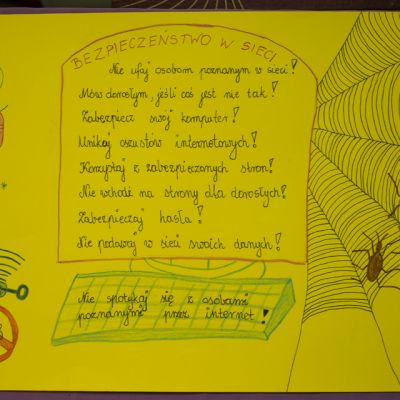 BEZPIECZEŃSTWO W SIECI
Nie ufaj osobom poznanym w sieci!
Mów dorosłym, jeśli coś jest nie tak!
Zabezpiecz swój komputer!
Unikaj oszustów internetowych!
Korzystaj z zabezpieczonych stron!
Nie wchodź na strony dla dorosłych!
Zabezpieczaj hasła!
Nie podawaj w sieci swoich danych!
Nie spotykaj się z osobami
poznanymi przez internet!